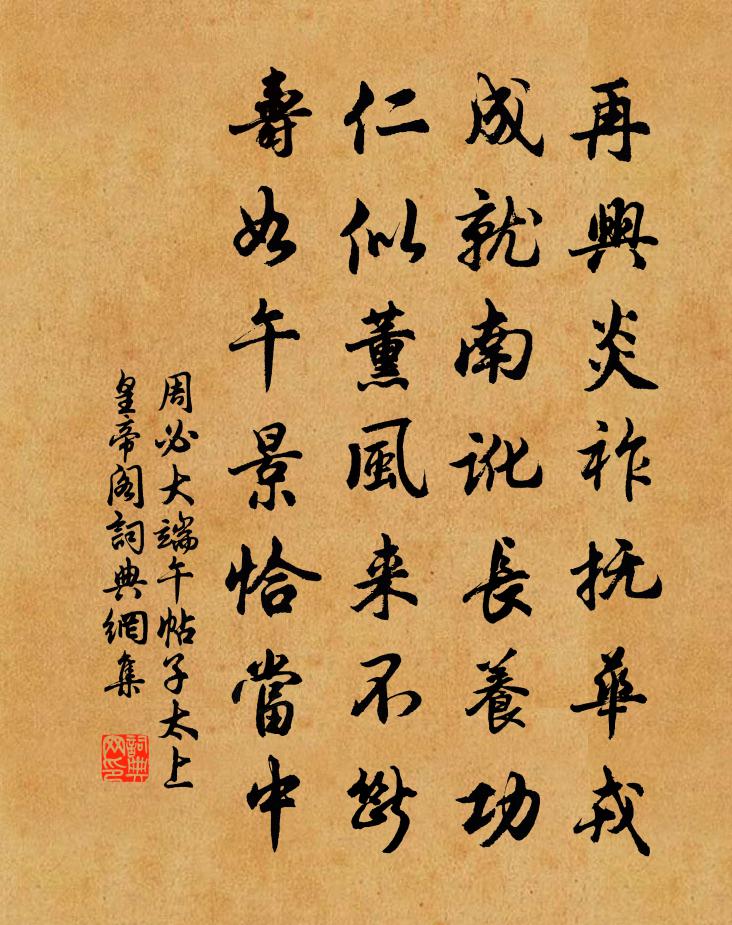 再興炎祚抚華戎
成就南訛長養功
仁似薰風来不斷
壽如午景恰當中
周必大端午帖子太上
皇帝阁詞典網集
詞典
网印